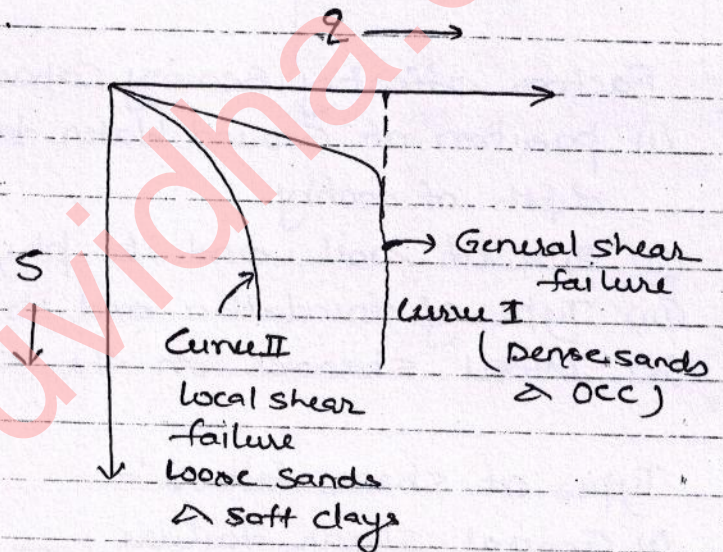 q
S
General shear
failure
Curve I
(Dense sands
& OCC)
Curve II
local shear
failure
loose sands
& soft clays
uvidha.c